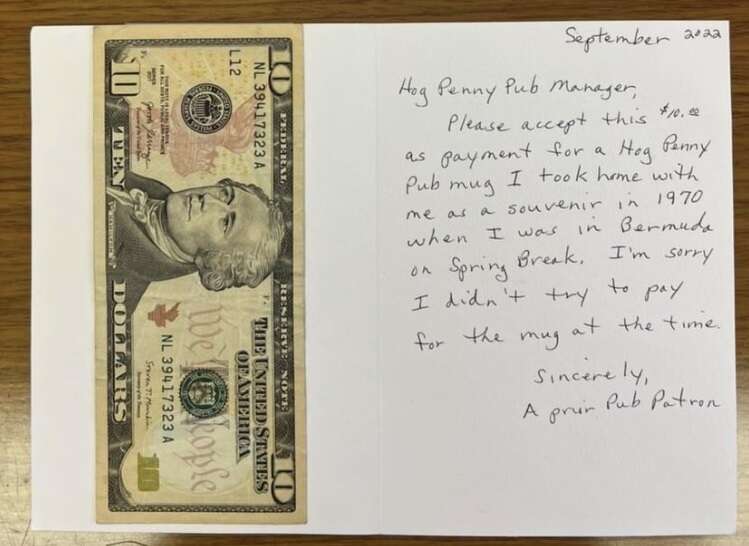 September 2022
Hog Penny Pub Manager,
Please accept this $10.00
as payment for a Hog Penny
Pub mug I took home with
me as a souvenir in 1970
when I was in Bermuda
on Spring Break. I'm sorry
I didn't try to pay
for the mug at the time.
Sincerely,
A prior Pub Patron
10
FEDERAL RESERVE NOTE
THE UNITED STATES
OF AMERICA
NL 39417323 A
L12
We the People
NL 39417323 A
TEN DOLLARS
10
10
10